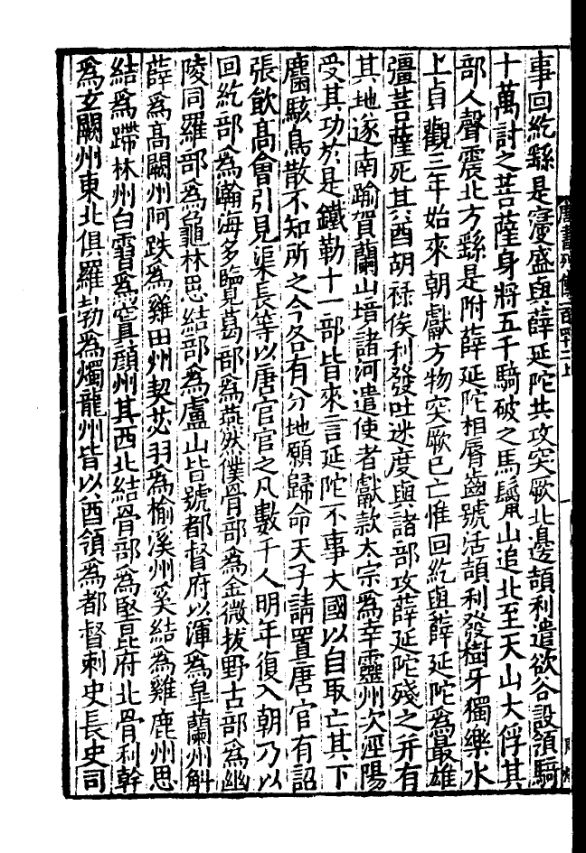 事回紇繇是寖盛與薛延陀共攻突厥北邊頡利遣欲谷設領騎
十萬討之菩薩身將五千騎破之馬鬣山追北至天山大俘其
部人聲震北方繇是附薛延陀相脣齒號活頡利發樹牙獨樂水
上貞觀三年始來朝獻方物突厥已亡惟回紇與薛延陀爲最雄
彊菩薩死其酋胡祿俟利發吐迷度與諸部攻薛延陀殘之并有
其地遂南踰賀蘭山境諸河遣使者獻款太宗爲幸靈州次涇陽
受其功於是鐵勒十一部皆來言延陀不事大國以自取亡其下
麕駭鳥散不知所之今各有分地願歸命天子請置唐官有詔
張飲高會引見渠長等以唐官官之凡數千人明年復入朝乃以
回紇部爲瀚海多覽葛部爲燕然僕骨部爲金微拔野古部爲幽
陵同羅部爲龜林思結部爲盧山皆號都督府以渾爲皐蘭州斛
薛爲高闕州阿跌爲雞田州契苾羽爲榆溪州奚結爲雞鹿州思
結爲蹛林州白霫爲窴顏州其西北結骨部爲堅昆府北骨利幹
爲玄闕州東北俱羅勃爲燭龍州皆以酋領爲都督刺史長史司